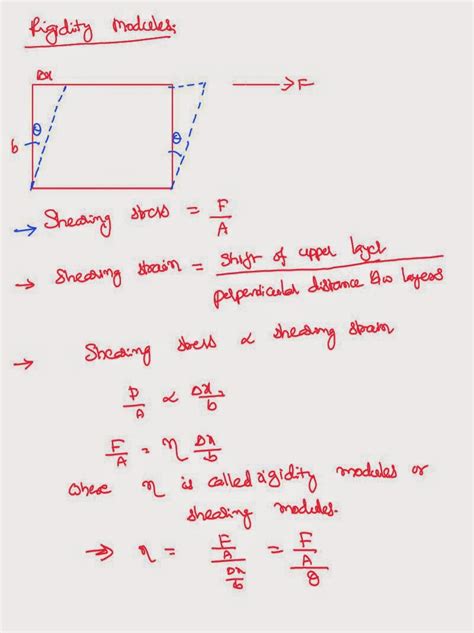 Rigidity Modules:
Δx
→ F
θ
θ
b
→ Shearing stress = F/A
→ Shearing strain = shift of upper layer / perpendicular distance b/w layers
→ Shearing stress ∝ shearing strain
F/A ∝ Δx/b
F/A = η Δx/b
where η is called rigidity modules or
shearing modules.
⇒ η = F/A / Δx/b = F/A / θ